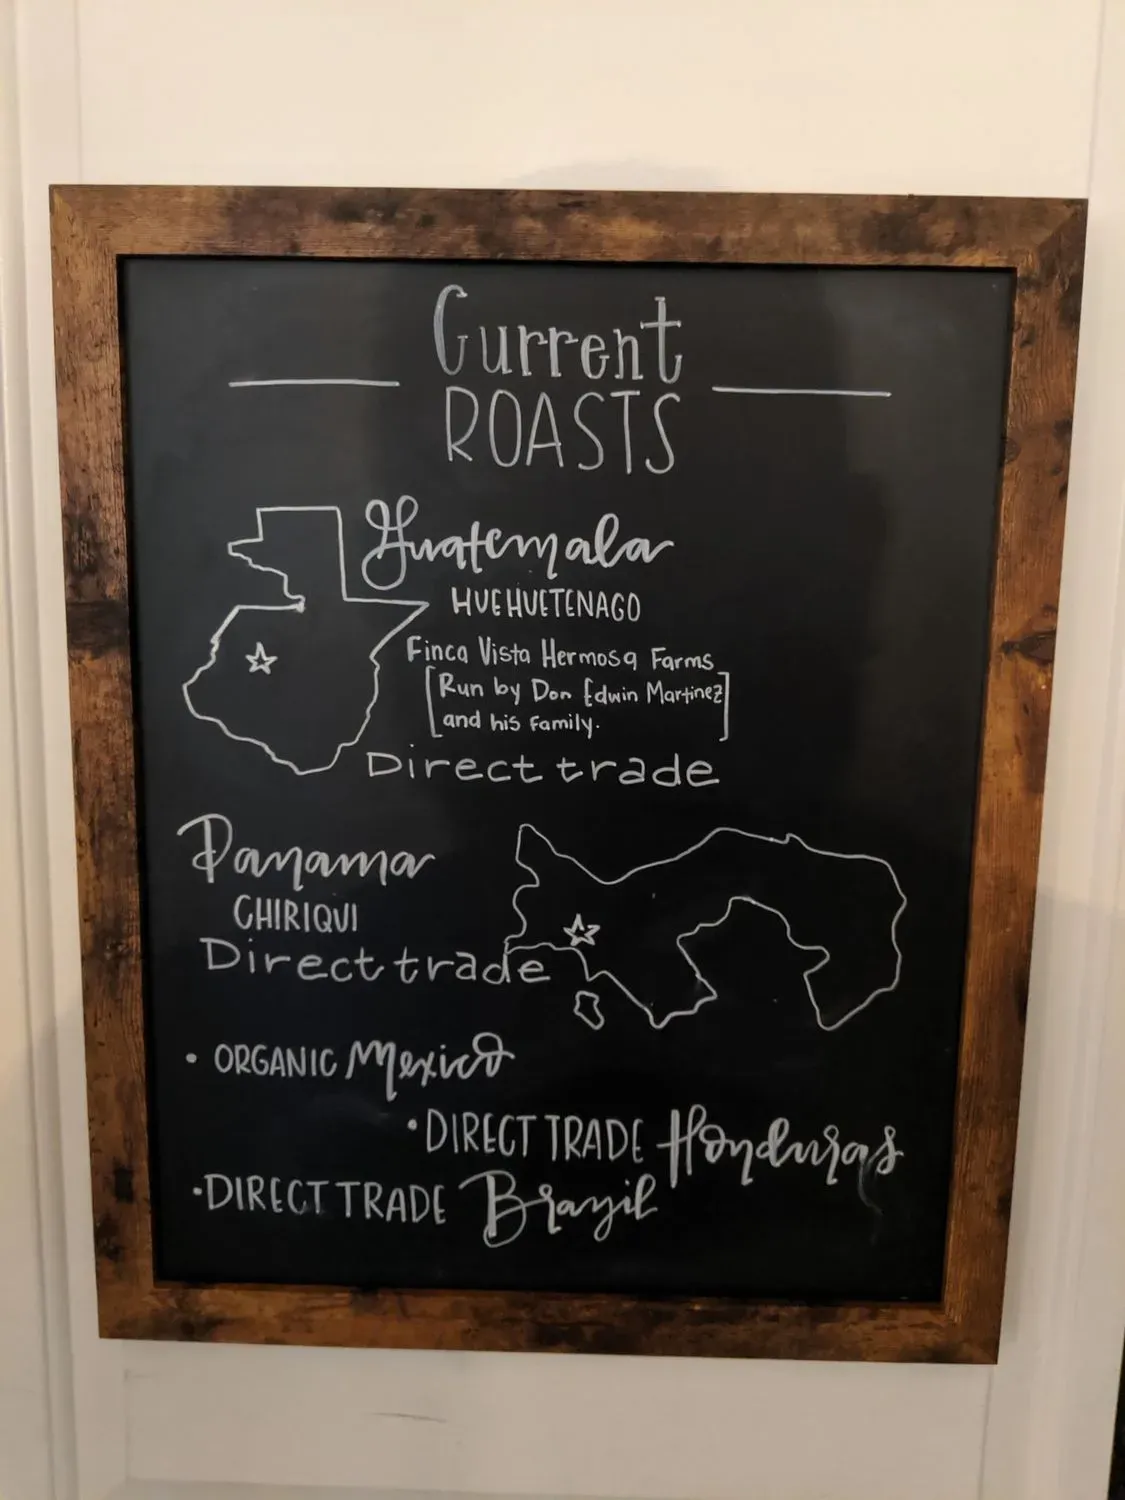 Current
ROASTS
Guatemala
HUEHUETENAGO
Finca Vista Hermosa Farms
[Run by Don Edwin Martinez
and his Family.]
Direct trade
Panama
CHIRIQUI
Direct trade
• ORGANIC Mexico
• DIRECT TRADE Honduras
• DIRECT TRADE Brazil